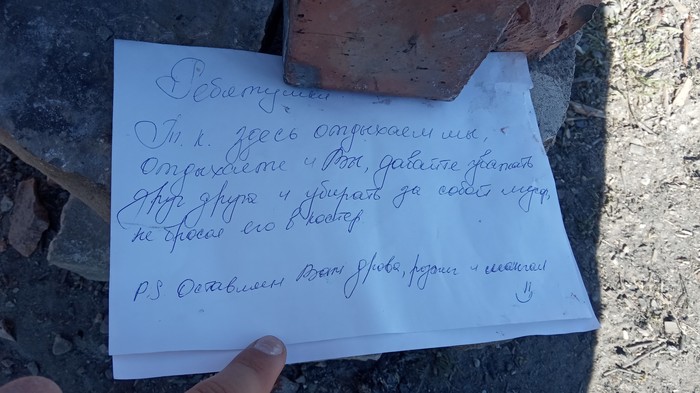 Ребятушки
Т. к. здесь отдыхаем мы,
отдыхаете и Вы, давайте уважать
друг друга и убирать за собой мусор,
не бросая его в костер
P.S Оставляем Вам дрова, розжиг и мангал